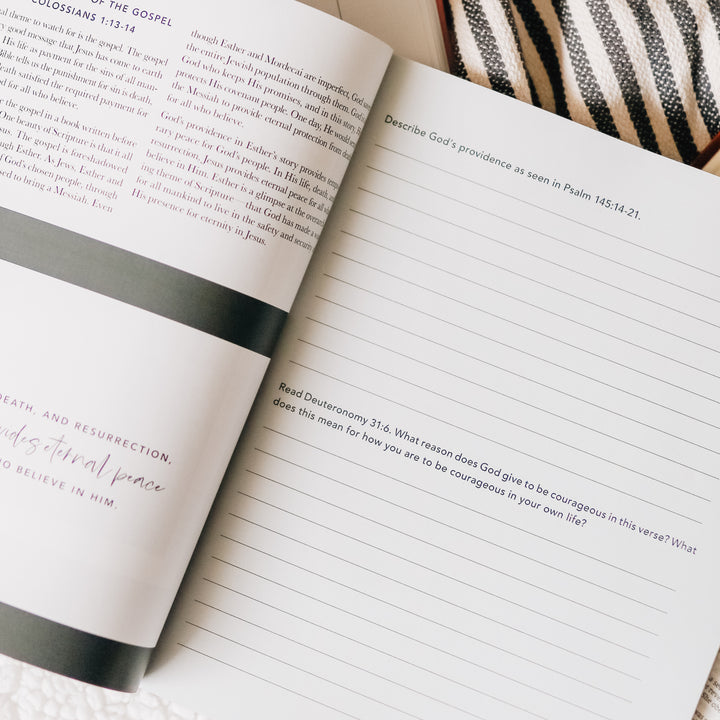 OF THE GOSPEL
COLOSSIANS 1:13-14
theme to watch for is the gospel. The gospel
good message that Jesus has come to earth
His life as payment for the sins of all man-
Bible tells us the punishment for sin is death,
death satisfied the required payment for
for all who believe.
the gospel in a book written before
One beauty of Scripture is that it all
Jesus. The gospel is foreshadowed
through Esther. As Jews, Esther and
of God's chosen people, through
to bring a Messiah. Even
though Esther and Mordecai are imperfect, God
the entire Jewish population through them. God
God who keeps His promises, and in this story, He
protects His covenant people. One day, He would
the Messiah to provide eternal protection from
for all who believe.
God's providence in Esther's story provides
rary peace for God's people. In His life, death,
resurrection, Jesus provides eternal peace for all
believe in Him. Esther is a glimpse at the
ing theme of Scripture—that God has made a
for all mankind to live in the safety and
His presence for eternity in Jesus.
DEATH, AND RESURRECTION,
eternal peace
WHO BELIEVE IN HIM.
Describe God's providence as seen in Psalm 145:14-21.
Read Deuteronomy 31:6. What reason does God give to be courageous in this verse? What
does this mean for how you are to be courageous in your own life?